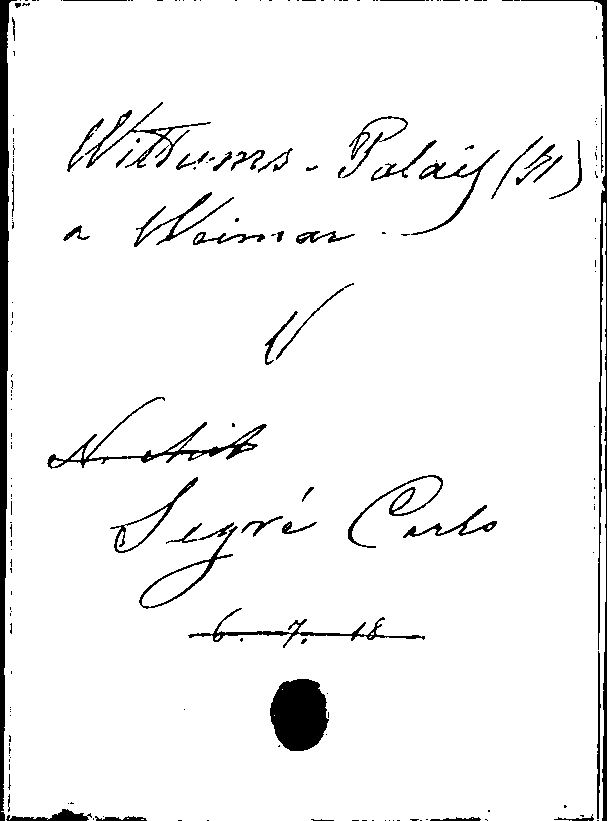 Wittums-Palais (31)
a Weimar.
V
Segré Carlo
6. 7. 18